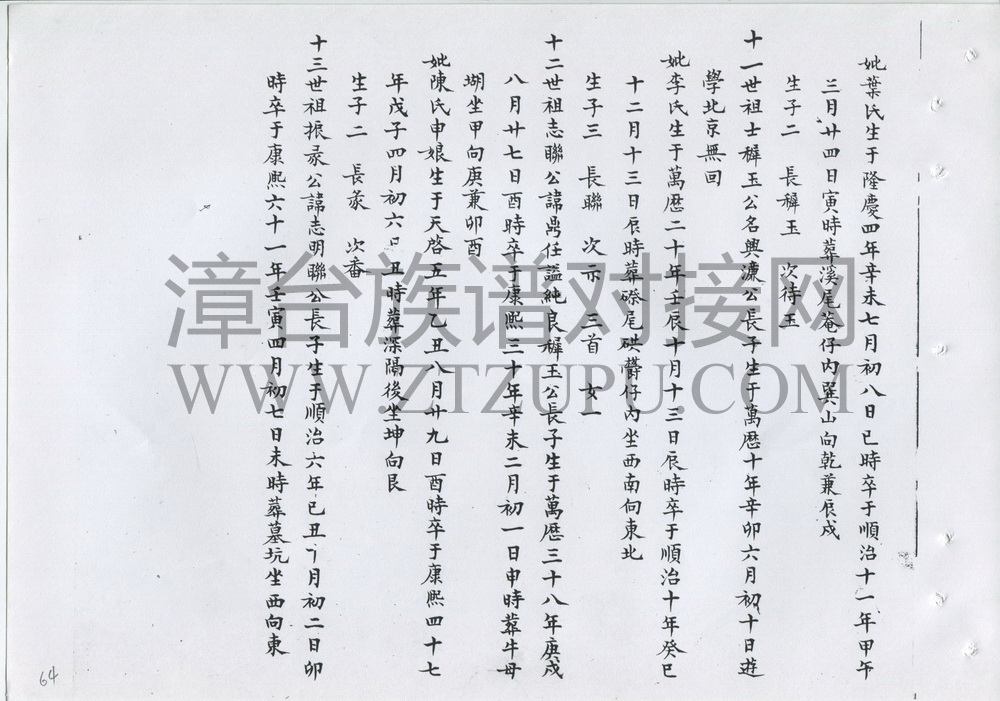 妣葉氏生于隆慶四年辛未七月初八日巳時卒于順治十一年甲午
三月廿四日寅時葬溪尾菴仔内巽山向乾兼辰戌
生子二 長穉玉 次待玉
十一世祖士穉玉公名興濂公長子生于萬歷十年辛卯六月初十日遊
學北京無回
妣李氏生于萬歷二十年壬辰十月十三日辰時卒于順治十年癸巳
十二月十三日辰時葬磜尾硔欝仔内坐西南向東北
生子三 長聯 次示 三首 女一
十二世祖志聯公諱禼任謚純良穉玉公長子生于萬歷三十八年庚戌
八月廿七日酉時卒于康熙三十年辛未二月初一日申時葬牛母
堋坐甲向庚兼卯酉
妣陳氏申娘生于天啓五年乙丑八月廿九日酉時卒于康熙四十七
年戊子四月初六日丑時葬深隔後坐坤向艮
生子二 長 次番
十三世祖振 公諱志明聯公長子生于順治六年己丑 月初二日卯
時卒于康熙六十一年壬寅四月初七日未時葬墓坑坐西向東
64
漳台族谱对接网
WWW.ZTZUPU.COM